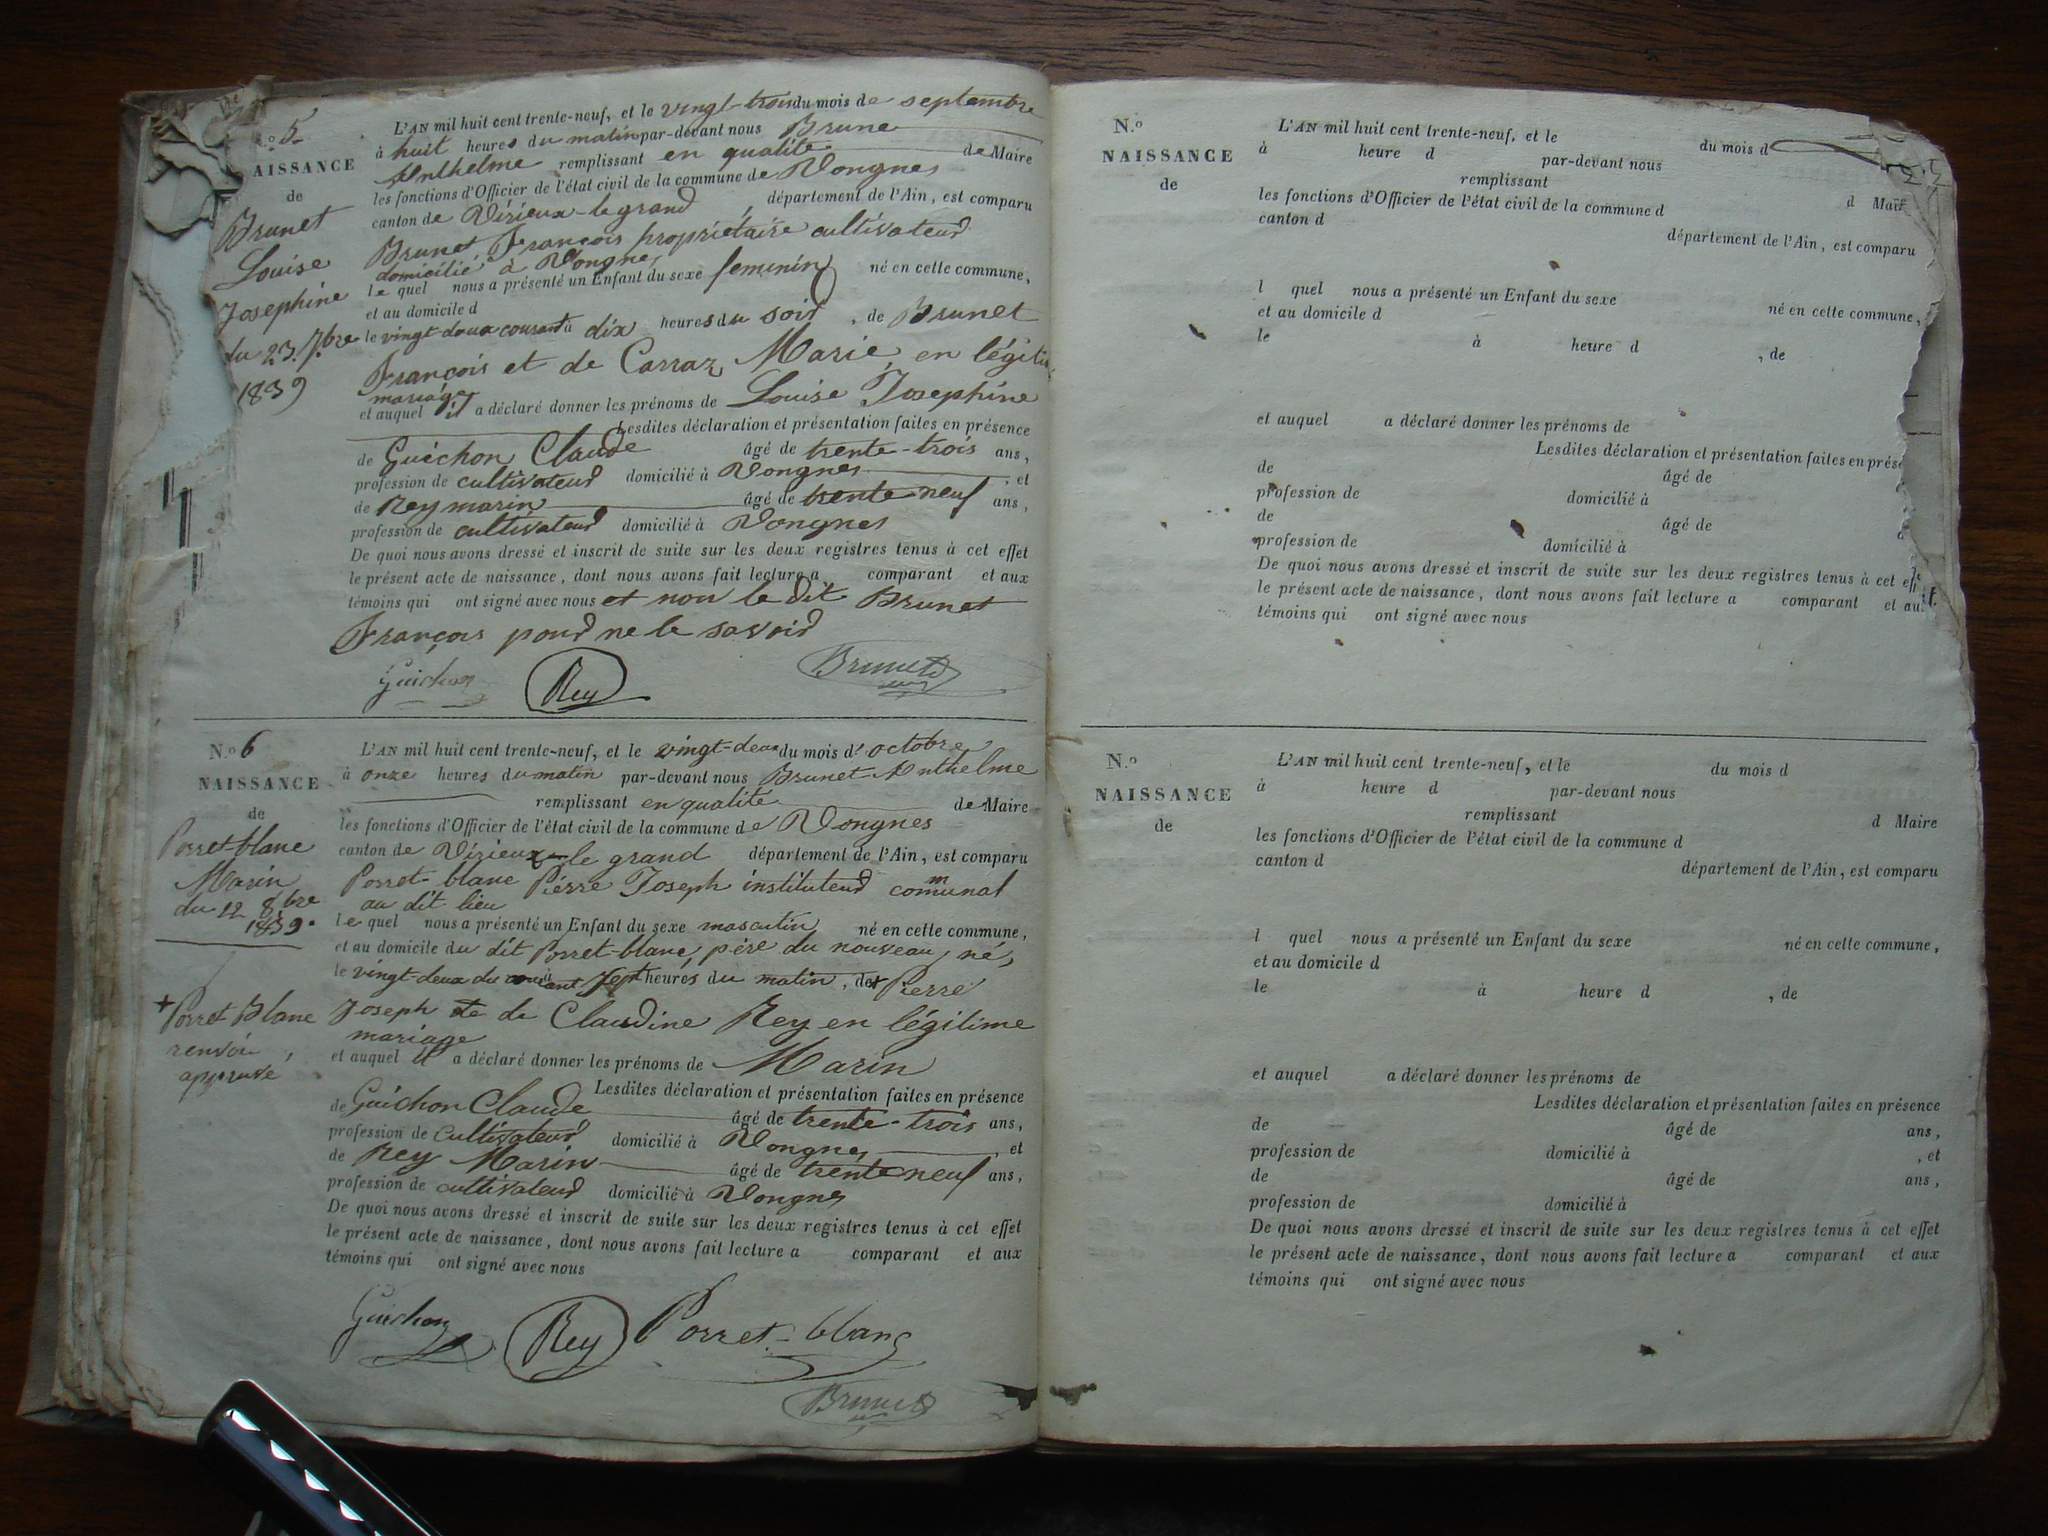 N.o 5
AISSANCE
de
Brunet
Louise
Josephine
du 23 7bre
1839
L'AN mil huit cent trente-neuf, et le vingt-trois du mois de septembre
à huit heures du matin par-devant nous Brune
Anthelme remplissant en qualité de Maire
les fonctions d'Officier de l'état civil de la commune de Vongnes
canton de Virieux-le grand, département de l'Ain, est comparu
Brunet François propriétaire cultivateur
domicilié à Vongnes
le quel nous a présenté un Enfant du sexe feminin né en cette commune,
et au domicile d
le vingt deux courant à dix heures du soir, de Brunet
François et de Carraz Marie, en légiti
mariage
et auquel il a déclaré donner les prénoms de Louise Josephine
Lesdites déclaration et présentation faites en présence
de Guichon Claude âgé de trente-trois ans,
profession de cultivateur domicilié à Vongnes, et
de Rey marin âgé de trente neuf ans,
profession de cultivateur domicilié à Vongnes
De quoi nous avons dressé et inscrit de suite sur les deux registres tenus à cet effet
le présent acte de naissance, dont nous avons fait lecture a comparant et aux
témoins qui ont signé avec nous et non le dit Brunet
François pour ne le savoir
Guichon Rey Brunet
N.o 6
NAISSANCE
de
Porret blanc
Marin
du 22 8bre
1839.
+ Porret Blanc
renvoi
appruvé
L'AN mil huit cent trente-neuf, et le vingt-deux du mois d'octobre
à onze heures du matin par-devant nous Brunet Anthelme
remplissant en qualité de Maire
les fonctions d'Officier de l'état civil de la commune de Vongnes
canton de Virieux-le grand département de l'Ain, est comparu
Porret-blanc Pierre Joseph instituteur communal
au dit lieu
le quel nous a présenté un Enfant du sexe masculin né en cette commune,
et au domicile du dit Porret-blanc, père du nouveau, né,
le vingt-deux du courant à sept heures du matin, de + Pierre
Joseph et de Claudine Rey en légitime
mariage
et auquel il a déclaré donner les prénoms de Marin
Lesdites déclaration et présentation faites en présence
de Guichon Claude âgé de trente-trois ans,
profession de cultivateur domicilié à Vongnes, et
de Rey Marin âgé de trente neuf ans,
profession de cultivateur domicilié à Vongnes
De quoi nous avons dressé et inscrit de suite sur les deux registres tenus à cet effet
le présent acte de naissance, dont nous avons fait lecture a comparant et aux
témoins qui ont signé avec nous
Guichon Rey Porret-blanc
Brunet
N.o
NAISSANCE
de
L'AN mil huit cent trente-neuf, et le du mois d
à heure d par-devant nous
remplissant d Mai
les fonctions d'Officier de l'état civil de la commune d
canton d département de l'Ain, est comparu
l quel nous a présenté un Enfant du sexe né en cette commune,
et au domicile d
le à heure d , de
et auquel a déclaré donner les prénoms de
Lesdites déclaration et présentation faites en prése
de âgé de
profession de domicilié à
de âgé de
profession de domicilié à
De quoi nous avons dressé et inscrit de suite sur les deux registres tenus à cet eff
le présent acte de naissance, dont nous avons fait lecture a comparant et au
témoins qui ont signé avec nous
N.o
NAISSANCE
de
L'AN mil huit cent trente-neuf, et le du mois d
à heure d par-devant nous
remplissant d Maire
les fonctions d'Officier de l'état civil de la commune d
canton d département de l'Ain, est comparu
l quel nous a présenté un Enfant du sexe né en cette commune,
et au domicile d
le à heure d , de
et auquel a déclaré donner les prénoms de
Lesdites déclaration et présentation faites en présence
de âgé de ans,
profession de domicilié à , et
de âgé de ans,
profession de domicilié à
De quoi nous avons dressé et inscrit de suite sur les deux registres tenus à cet effet
le présent acte de naissance, dont nous avons fait lecture a comparant et aux
témoins qui ont signé avec nous